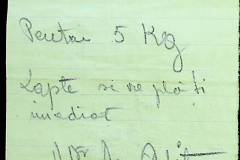 Pentru 5 Kg
Lapte si ne plăti
imediat